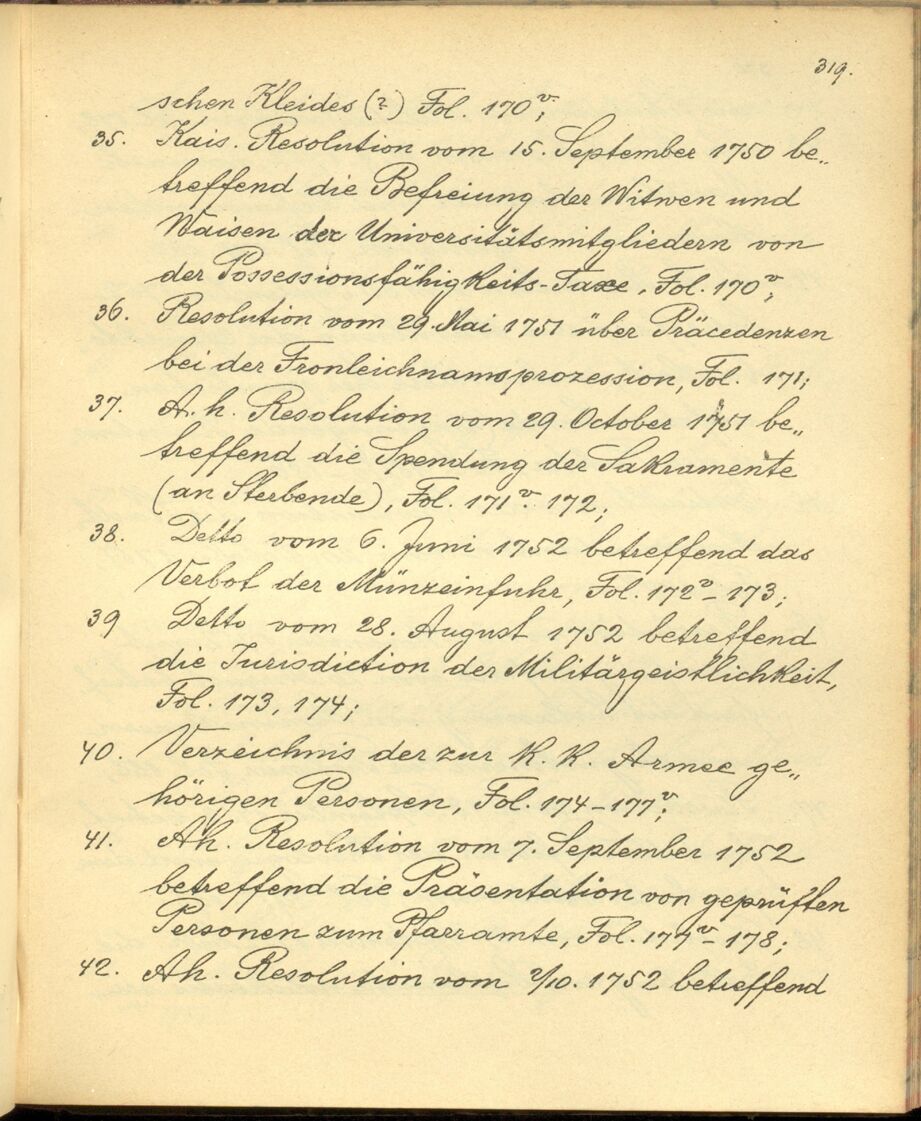 319.
schen Kleides (?) Fol. 170v;
35. Kais. Resolution vom 15. September 1750 be„
treffend die Befreiung der Witwen und
Waisen der Universitätsmitgliedern von
der Possessionsfähigkeits-Taxe, Fol. 170v;
36. Resolution vom 29. Mai 1751 über Präcedenzen
bei der Fronleichnamsprozession, Fol. 171;
37. A. h. Resolution vom 29. October 1751 be„
treffend die Spendung der Sakramente
(an Sterbende), Fol. 171v. 172;
38. Detto vom 6. Juni 1752 betreffend das
Verbot der Münzeinfuhr, Fol. 172v–173;
39 Detto vom 28. August 1752 betreffend
die Jurisdiction der Militärgeistlichkeit,
Fol. 173, 174;
40. Verzeichnis der zur K. K. Armee ge„
hörigen Personen, Fol. 174–177v;
41. Ah. Resolution vom 7. September 1752
betreffend die Präsentation von geprüften
Personen zum Pfarramte, Fol. 177v–178;
42. Ah. Resolution vom 2/10. 1752 betreffend